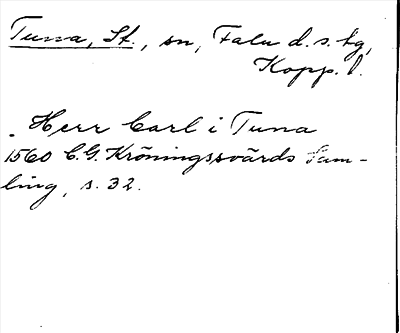 Tuna, St., sn, Falu d.s. tg,
Kopp. l.
Herr Carl i Tuna
1560 C.G. Kröningssvärds Sam-
ling, s. 32.